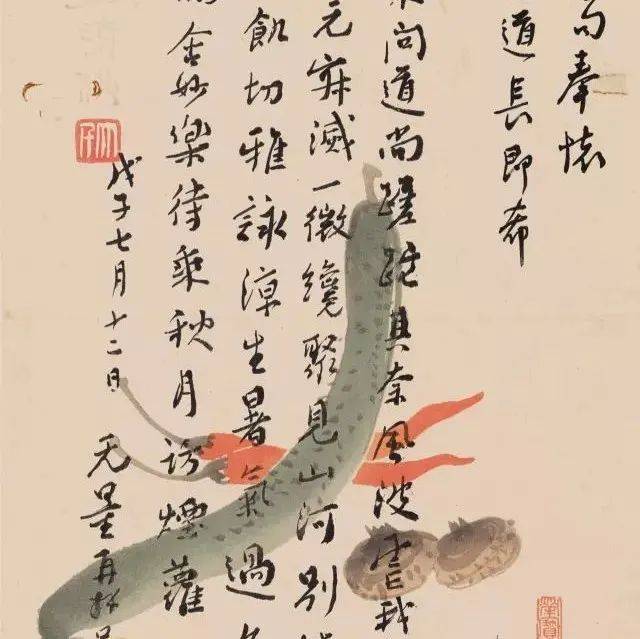 句奉懷
道長即希
問道尚蹉跎其奈風波害我
元齊滅一微纔聚見山河別
飢切雅詠涼生暑氣過
舍妙樂待乘秋月訪煙蘿
戊子七月十二日 无量再拜